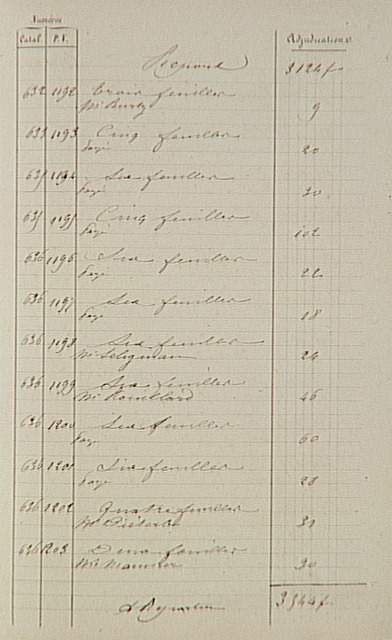 Numéros
Catal. P.V. Adjudications.
Report 3124 f
632 1192 Trois feuilles
Mr 9
633 1193 Cinq feuilles
Payé 20
1194 Six feuilles
Payé 20
635 1195 Cinq feuilles
Payé 102
636 1196 Six feuilles
Payé 22
636 1197 Six feuilles
Payé 18
636 1198 Six feuilles
Mr Seligman 24
636 1199 Six feuilles
Mr 46
636 1200 Six feuilles
Payé 60
636 1201 Six feuilles
Payé 28
636 1202 Quatre feuilles
Mr 31
636 1203 Deux feuilles
Mr 30
à Reporter 3544 f